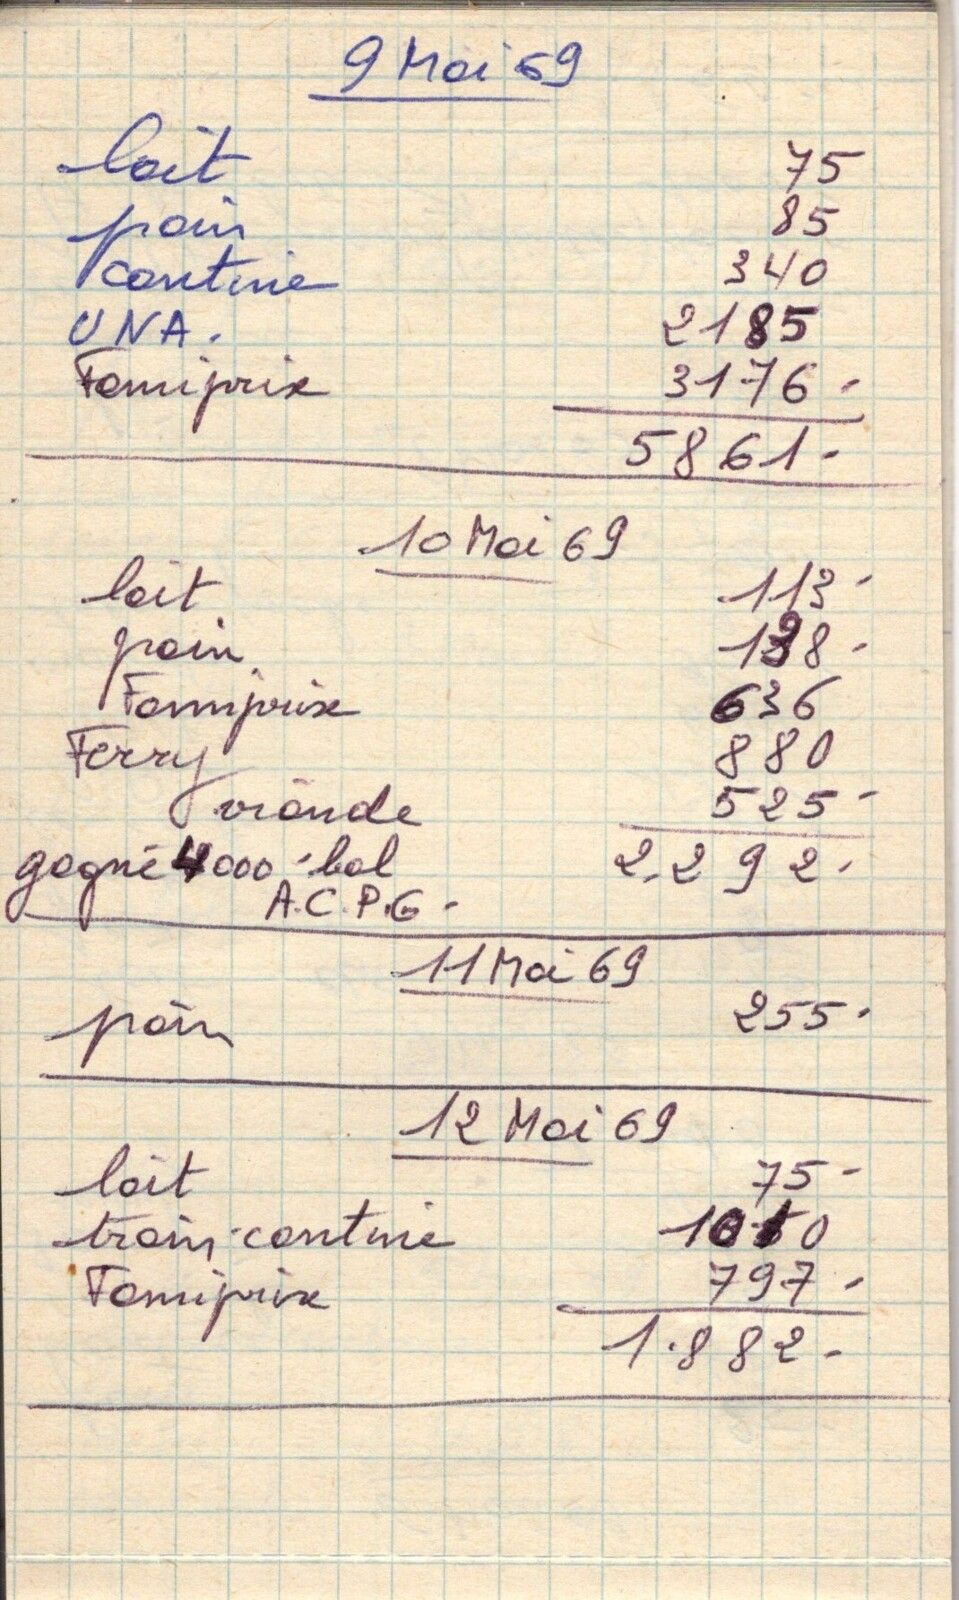 9 Mai 69
lait 75
pain 85
cantine 340
UNA. 2185
Famiprix 3176 -
5861 -
10 Mai 69
lait 113 -
pain. 138 -
Famiprix 636
Ferry 880
viande 525 -
gagné 4000 - bal 2.292 -
A.C.P.G -
11 Mai 69
pain 255 -
12 Mai 69
lait 75 -
train-cantine 1010
Famiprix 797 -
1.882 -